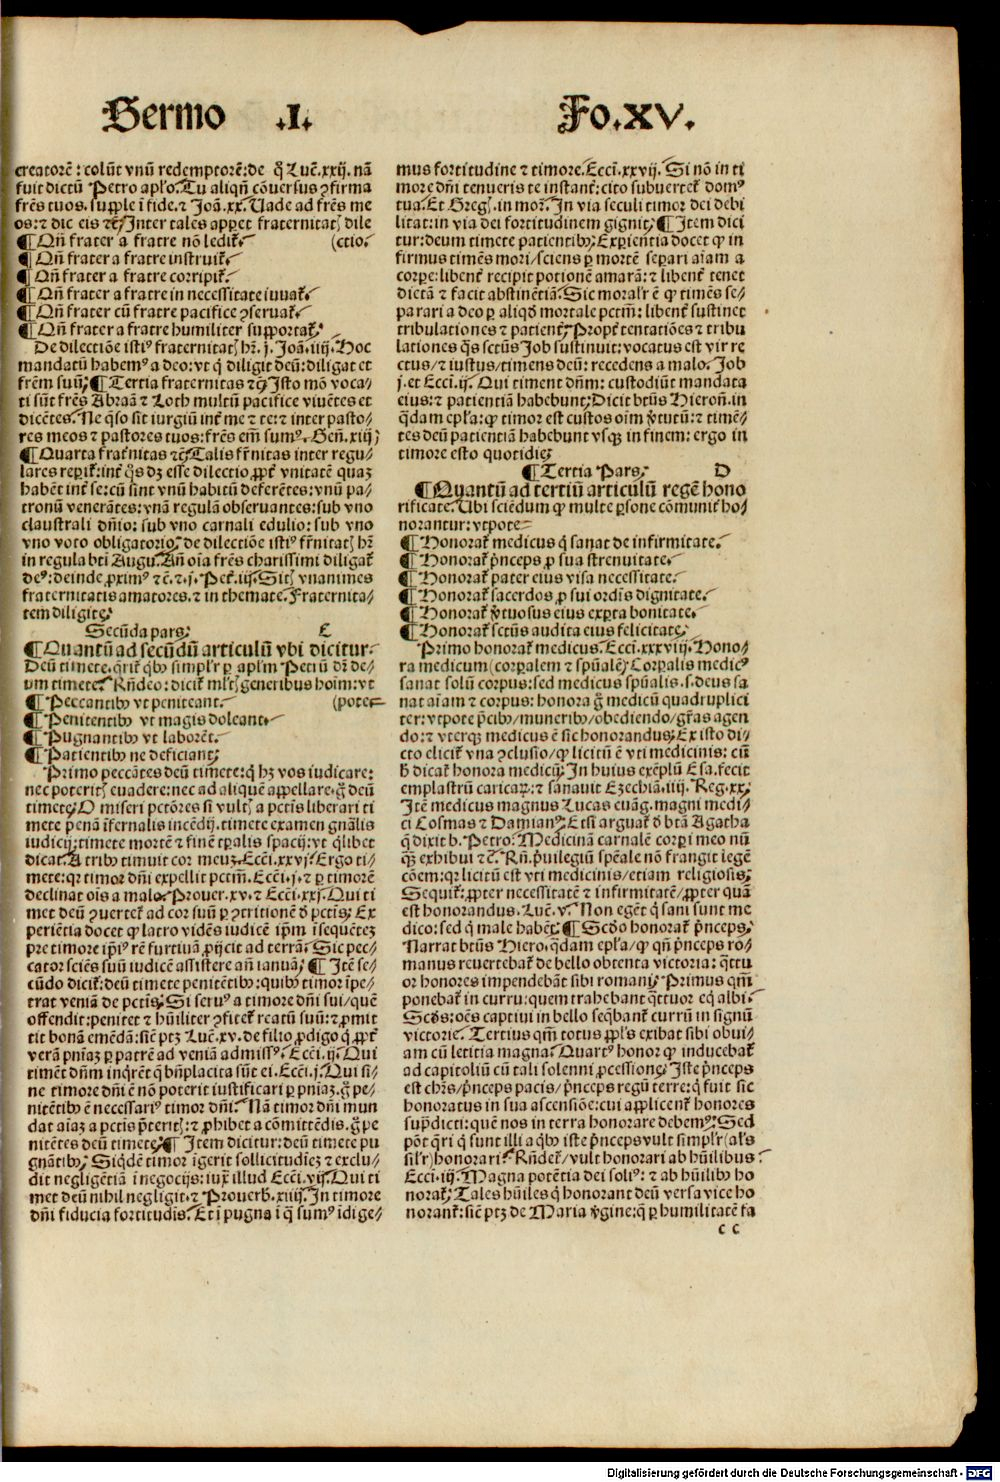 Sermo .I.
Fo.XV.
creatorē: colūt vnū redemptorē: de q̇ Luē.xxij. nā
fuit dictū Petro apl̄o. Tu aliqn̄ cōuersus ꝯfirma
frēs tuos. supple ī fide. ⁊ Joā.xx. Uade ad frēs me
os: ⁊ dic eis ⁊c̄. Inter tales apparet fraternitatꝭ dile
¶ Qn̄ frater a fratre nō leditʳ. (ctio.
¶ Qn̄ frater a fratre instruitʳ.
¶ Qn̄ frater a fratre corripitʳ.
¶ Qn̄ frater a fratre in necessitate iuuatʳ.
¶ Qn̄ frater cū fratre pacifice ꝯseruatʳ.
¶ Qn̄ frater a fratre humiliter supportatʳ.
De dilectiōe istiꝰ fraternitatꝭ hr̄. j. Joā.iiij. Hoc
mandatū habemꝰ a deo: vt q̇ diligit deū: diligat et
frēm suū. ¶ Tertia fraternitas ⁊c̄. Isto mō voca-
ti sūt frēs Abraā ⁊ Loth multū pacifice viuētes et
dicētes. Ne q̄so sit iurgiū int̄ me ⁊ te: ⁊ inter pasto-
res meos ⁊ pastores tuos: frēs em̄ sumꝰ. Gen̄.xiij
¶ Quarta frat̄nitas ⁊c̄. Talis fr̄nitas inter regu-
lares reperitʳ: int̄ q̄s dꝫ esse dilectio ꝓpt̄ vnitatē quaꝫ
habēt int̄ se: cū sint vnū habitū deferētes: vnū pa-
tronū venerātes: vnā regulā obseruantes: sub vno
claustrali dn̄io: sub vno carnali edulio: sub vno
vno voto obligatorio. de dilectiōe istiꝰ fr̄nitatꝭ hr̄
in regula bt̄i Augu. An̄ oīa frēs charissimi diligatʳ
deꝰ: deinde ꝓximꝰ ⁊c̄. ⁊ .j. Pet̄.iij. Sitꝭ vnanimes
fraternitatis amatores. ⁊ in themate. Fraternita-
tem diligite.
Secūda pars. C
¶ Quantū ad secūdū articulū vbi dicitur.
Deū timete. q̄ritʳ q̇bꝰ simplʳr ꝑ apl̄m Petrū dr̄ de-
um timete. Rn̄deo: dicitʳ ml̄tꝭ generibus hoīm: vt
¶ Peccantibꝰ vt peniteant. (pote
¶ Penitentibꝰ vt magis doleant.
¶ Pugnantibꝰ vt laborēt.
¶ Patientibꝰ ne deficiant.
Primo peccātes deū timete: q̇ hꝫ vos iudicare:
nec poteritꝭ euadere: nec ad aliquē appellare. g̊ deū
timete. O miseri pctōres si vultꝭ a pctīs liberari ti
mete penā īfernalis incēdij. timete examen gn̄alis
iudicij: timete mortē ⁊ finē tꝑalis spacij: vt q̇libet
dicat. A tribꝰ timuit cor meuꝫ. Ecci.xxvj. Ergo ti-
mete: qꝛ timor dn̄i expellit pctm̄. Ecci.j. ⁊ ꝑ timorē
declinat oīs a malo. Prouer.xv. ⁊ Ecci.xxj. Qui ti
met deū ꝯuertetʳ ad cor suū ꝑ ꝯtritionē ꝺ pctīs. Ex
periētia docet ꝙ latro vidēs iudicē ip̄m īsequētez
pre timore ip̄iꝰ rē furtiuā ꝓijcit ad terrā. Sic pec-
cator sciēs suū iudicē assistere an̄ ianuā. ¶ Itē se-
cūdo dicitʳ: deū timete penitētibꝰ: quibꝰ timor īpe-
trat veniā de pctīs. Si seruꝰ a timore dn̄i sui, quē
offendit: penitet ⁊ hūiliter ꝯfitetʳ reatū suū: ⁊ ꝓmit
tit bonā emēdā: sic ptꝫ Luē.xv. de filio ꝓdigo q̇ ꝓpt̄
verā pn̄iaꝫ ꝑ patrē ad veniā admissꝰ. Ecci.ij. Qui
timēt dn̄m inq̇rēt q̄ bn̄placita sūt ei. Ecci.j. Qui si-
ne timore dn̄i ē nō poterit iustificari ꝑ pn̄iaꝫ. g̊ pe-
nitētibꝰ ē necessariꝰ timor dn̄i. Nā timor dn̄i mun
dat aīaꝫ a pctīs p̄teritꝭ: ⁊ ꝓhibet a cōmittēdis. g̊ pe
nitētes deū timete. ¶ Item dicitur: deū timete pu
gnātibꝰ. Siq̇dē timor īgerit sollicitudīeꝫ ⁊ exclu-
dit negligētiā ī negocijs: iux̄ illud Ecci.vij. Qui ti
met deū nihil negligit. ⁊ Prouerb.xiiij. In timore
dn̄i fiducia fortitudīs. Et ī pugna ī q̄ sumꝰ īdige-
mus fortitudine ⁊ timore. Ecci.xxvij. Si nō in ti
more dn̄i tenueris te instant̄: cito subuertetʳ domꝰ
tua. Et Greg. in mor̄. In via seculi timor dei debi
litat: in via dei fortitudinem gignit. ¶ Item dici
tur: deum timete patientibꝰ. Experientia docet ꝙ in
firmus timēs mori, sciens ꝑ mortē separi aīam a
corpe: libent̄ recipit potionē amarā: ⁊ libent̄ tenet
dietā ⁊ facit abstinētiā. Sic moralʳr ē ꝙ timēs se-
parari a deo ꝑ aliqd̓ mortale pctm̄: libent̄ sustinet
tribulationes ⁊ patient̄. Propt̄ tentatiōes ⁊ tribu
lationes q̄s sctūs Job sustinuit: vocatus est vir re
ctus, ⁊ iustus, timens deū: recedens a malo. Job
j. et Ecci.ij. Qui timent dn̄m: custodiūt mandata
eius: ⁊ patientiā habebunt. Dicit btūs Hieron̄. in
q̄dam epl̄a: ꝙ timor est custos oīm v̓tutū: ⁊ timē-
tes deū patientiā habebunt vsqꝫ in finem: ergo in
timore esto quotidie.
¶ Tertia Pars. D
¶ Quantū ad tertiū articulū regē hono
rificate. Ubi sciēdum ꝙ multe ꝑsone cōmunit̄ ho-
norantur: vtpote
¶ Honoratʳ medicus q̇ sanat de infirmitate.
¶ Honoratʳ p̄nceps ꝓ sua strenuitate.
¶ Honoratʳ pater eius visa necessitate.
¶ Honoratʳ sacerdos ꝓ sui ordīs dignitate.
¶ Honoratʳ v̓tuosus eius experta bonitate.
¶ Honoratʳ sctūs audita eius felicitate.
Primo honoratʳ medicus. Ecci.xxxviij. Hono-
ra medicum (corꝑalem ⁊ spūalē) Corꝑalis medicꝰ
sanat solū corpus: sed medicus spūalis .s. deus sa
nat aīam ⁊ corpus: honora g̊ medicū quadruplici
ter: vtpote p̄cibꝰ, muneribꝰ, obediendo, gr̄as agen
do: ⁊ vterqꝫ medicus ē sic honorandus. Ex isto di-
cto elicitʳ vna ꝯclusio, ꝙ licitū ē vti medicinis: cū
h̓ dicatʳ honora medicū. In huius exēplū Esa. fecit
emplastrū caricaꝝ: ⁊ sanauit Ezechiā. iiij. Reg.xx.
Itē medicus magnus Lucas euāg. magni medi-
ci Cosmas ⁊ Damianꝰ. Etsi arguatʳ ꝺ btā Agatha
q̄ dixit b. Petro. Medicinā carnalē corꝑi meo nū
q̄ꝫ exhibui ⁊c̄. Rn̄. p̄uilegiū spēale nō frangit legē
cōem: qꝛ licitū est vti medicinis, etiam religiosis.
Sequitʳ. ꝓpter necessitatē ⁊ infirmitatē, ꝓpter quā
est honorandus. Luē.v. Non egēt q̇ sani sunt me
dico: sed q̇ male habēt. ¶ Scd̓o honoratʳ p̄nceps.
Narrat btūs Hiero. q̄dam epl̄a, ꝙ qn̄ p̄nceps ro-
manus reuertebatʳ de bello obtenta victoria: q̄ttu
or honores impendebāt sibi romani. Primus qm̄
ponebatʳ in curru: quem trahebant q̄ttuor eq̇ albi.
Scd̓s: oēs captiui in bello seq̄bantʳ currū in signū
victorie. Tertius qm̄ totus ppl̄s exibat sibi obui-
am cū leticia magna. Quartꝰ honor ꝙ inducebatʳ
ad capitoliū cū tali solenni ꝓcessione. Iste p̄nceps
est chr̄s, p̄nceps pacis, p̄nceps regū terre: q̇ fuit sic
honoratus in sua ascensiōe: cui applicentʳ honores
sup̄dicti: quē nos in terra honorare debemꝰ. Sed
pōt q̄ri q̇ sunt illi a q̇bꝰ iste p̄nceps vult simplʳr (al's
silʳr) honorari. Rn̄detʳ, vult honorari ab hūilibus.
Ecci.iij. Magna potētia dei soliꝰ: ⁊ ab hūilibꝰ ho
noratʳ. Tales hūiles q̇ honorant deū versa vice ho
norantʳ: sic ptꝫ de Maria v̓gine: q̄ ꝑ humilitatē fa
c c
Digitalisierung gefördert durch die Deutsche Forschungsgemeinschaft - DFG